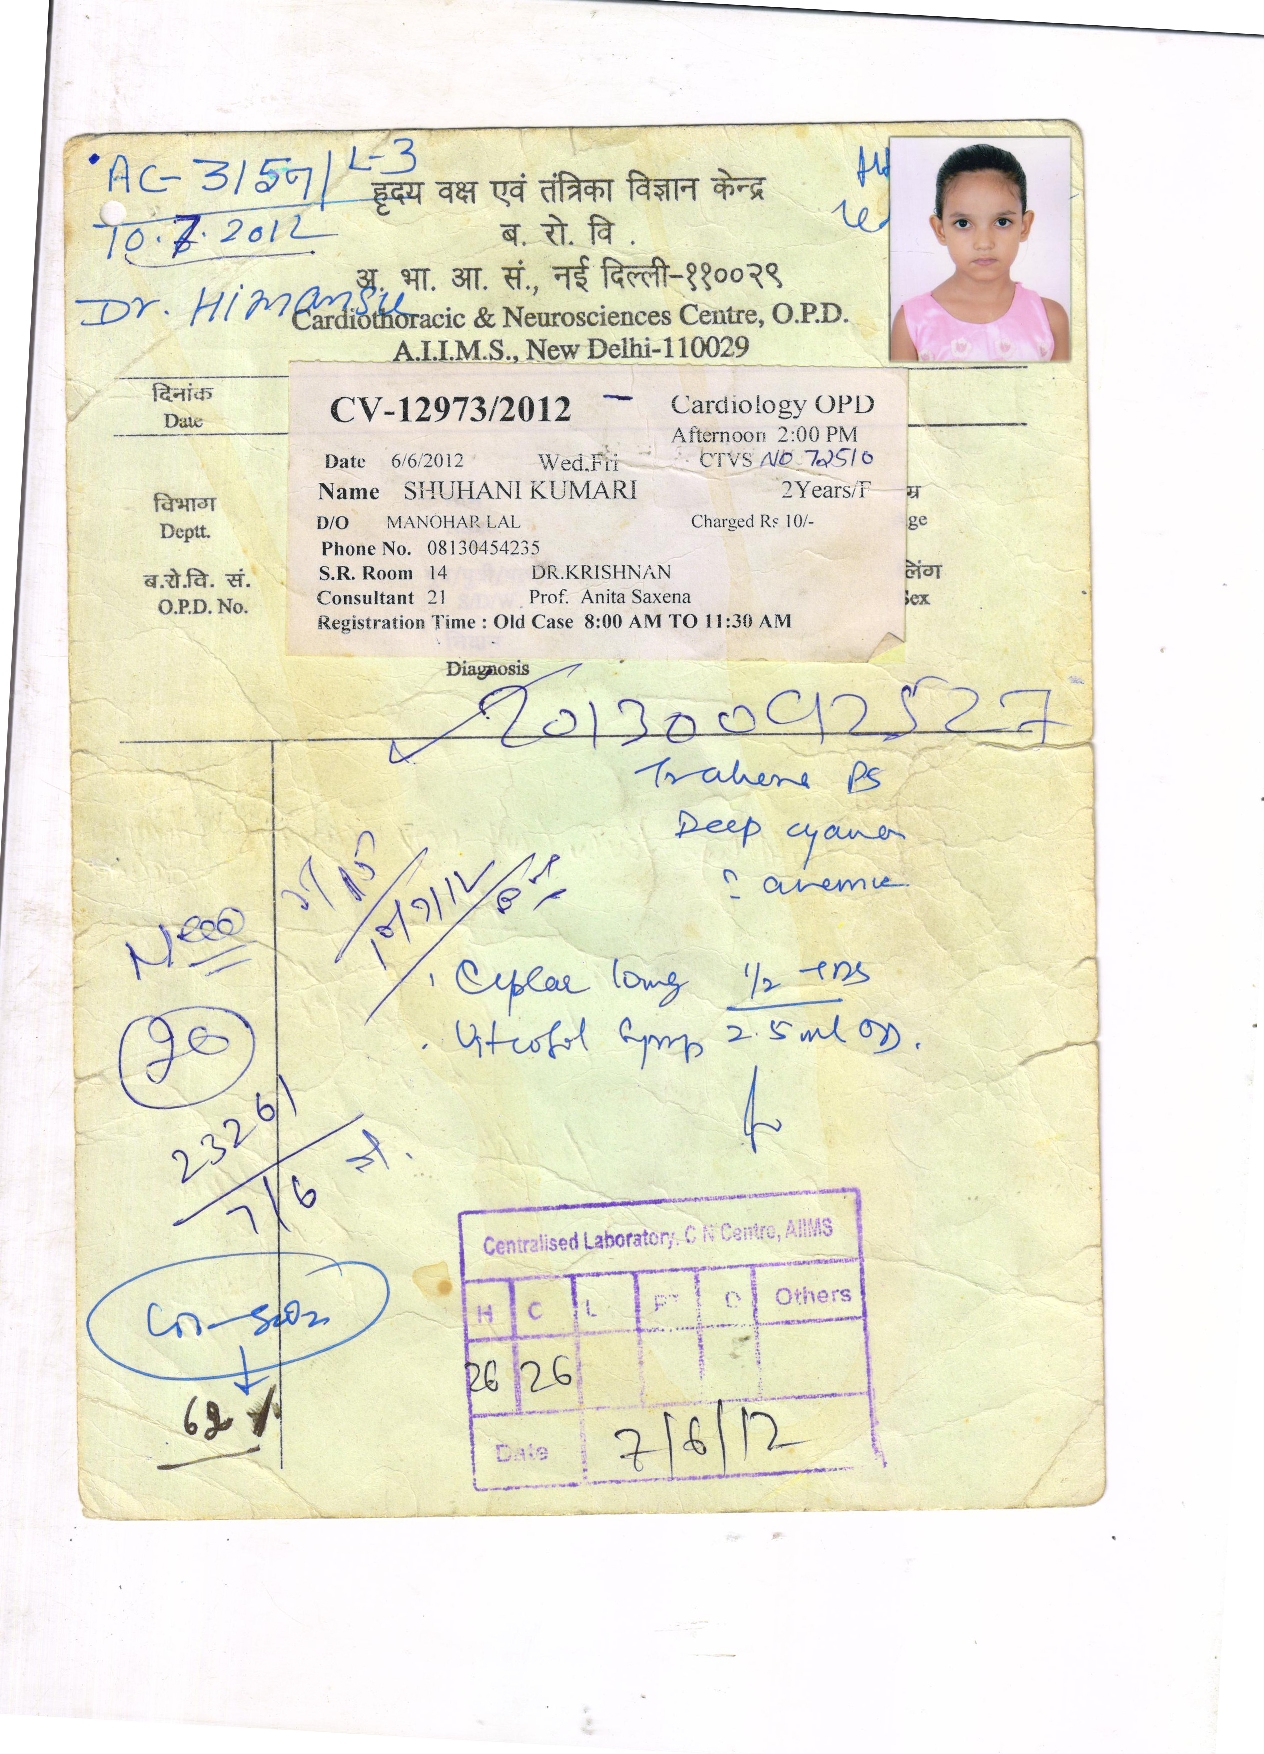 AC-3159/L-3
10.7.2012
Dr. Himansu
हृदय वक्ष एवं तंत्रिका विज्ञान केन्द्र
ब. रो. वि .
अ. भा. आ. सं., नई दिल्ली-११००२९
Cardiothoracic & Neurosciences Centre, O.P.D.
A.I.I.M.S., New Delhi-110029
दिनांक
Date
CV-12973/2012 – Cardiology OPD
Afternoon 2:00 PM
Date 6/6/2012 Wed,Fri CTVS NO 72510
Name SHUHANI KUMARI 2Years/F
D/O MANOHAR LAL Charged Rs 10/-
Phone No. 08130454235
S.R. Room 14 DR.KRISHNAN
Consultant 21 Prof. Anita Saxena
Registration Time : Old Case 8:00 AM TO 11:30 AM
विभाग
Deptt.
ब.रो.वि. सं.
O.P.D. No.
ge
लिंग
Sex
Diagnosis
20130092527
PS
Deep
10/7/12
long 1/2 TDS
Syrup 2.5 ml OD.
20
23261
7/6
62
Centralised Laboratory, C N Centre, AIIMS
H C L PT O Others
26 26
Date 7/6/12